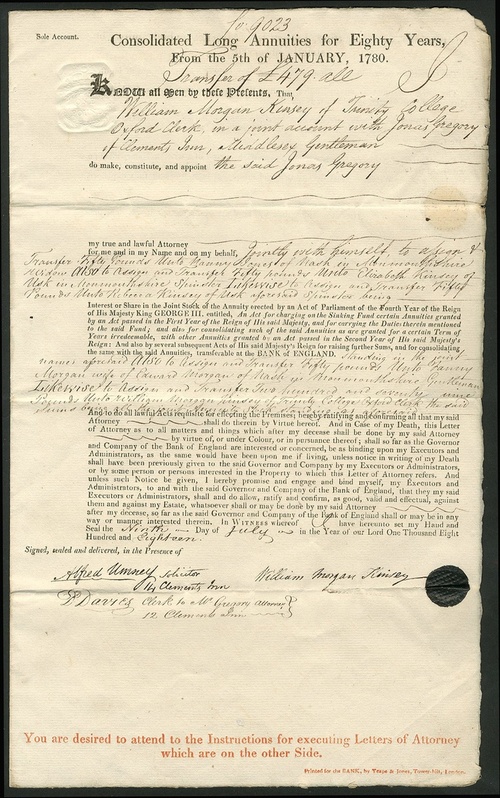 fo. 9023
Sole Account.
Consolidated Long Annuities for Eighty Years,
From the 5th of JANUARY, 1780.
Transfer of £479. all
KNOW all Men by these Presents, That
William Morgan Kinsey of Trinity College
Oxford Clerk, in a joint account with Jonas Gregory
of Clements Inn, Middlesex Gentleman
do make, constitute, and appoint the said Jonas Gregory
my true and lawful Attorney
for me and in my Name and on my behalf, Jointly with himself, to assign &
Transfer Fifty Pounds Unto Fanny Kinsey of Nash in Monmouthshire
Widow Also to Assign and Transfer Fifty pounds Unto Elizabeth Kinsey of
Usk in Monmouthshire Spinster Likewise to Assign and Transfer Fifty
Pounds Unto Rebecca Kinsey of Usk aforesaid Spinster being
Interest or Share in the Joint Stock of the Annuity erected by an Act of Parliament of the Fourth Year of the Reign
of His Majesty King GEORGE III. entitled, An Act for charging on the Sinking Fund certain Annuities granted
by an Act passed in the First Year of the Reign of His said Majesty, and for carrying the Duties therein mentioned
to the said Fund; and also for consolidating such of the said Annuities as are granted for a certain Term of
Years irredeemable, with other Annuities granted by an Act passed in the Second Year of His said Majesty's
Reign: And also by several subsequent Acts of His said Majesty's Reign for raising further Sums, and for consolidating
the same with the said Annuities, transferable at the BANK of ENGLAND. Standing in the joint
names aforesaid Also to Assign and Transfer Fifty pounds Unto Fanny
Morgan wife of Edward Morgan of in Monmouthshire Gentleman
Likewise to Assign and Transfer Two hundred and seventy nine
Pounds Unto William Morgan Kinsey of Trinity College Oxford Clerk the said
Sums being all
And to do all lawful Acts requisite for effecting the Premises; hereby ratifying and confirming all that my said
Attorney shall do therein by Virtue hereof. And in Case of my Death, this Letter
of Attorney as to all matters and things which after my decease shall be done by my said Attorney
by virtue of, or under Colour, or in pursuance thereof; shall so far as the Governor
and Company of the Bank of England are interested or concerned, be as binding upon my Executors and
Administrators, as the same would have been upon me if living, unless notice in writing of my Death
shall have been previously given to the said Governor and Company by my Executors or Administrators,
or by some person or persons interested in the Property to which this Letter of Attorney refers. And
unless such Notice be given, I hereby promise and engage and bind myself, my Executors and
Administrators, to and with the said Governor and Company of the Bank of England, that they my said
Executors or Administrators, shall and do allow, ratify and confirm, as good, valid and effectual, against
them and against my Estate, whatsoever shall or may be done by my said Attorney
after my decease, so far as the said Governor and Company of the Bank of England shall or may be in any
way or manner interested therein. In WITNESS whereof I have hereunto set my Hand and
Seal the Ninth Day of July in the Year of our Lord One Thousand Eight
Hundred and Eighteen.
Signed, sealed and delivered, in the Presence of
Alfred Umney Solicitor William Morgan Kinsey
14 Clements Inn
D Davies Clerk to Mr Gregory Attorney
12. Clements Inn
You are desired to attend to the Instructions for executing Letters of Attorney
which are on the other Side.
Printed for the BANK, by Teape & Jones, Tower-hill, London.